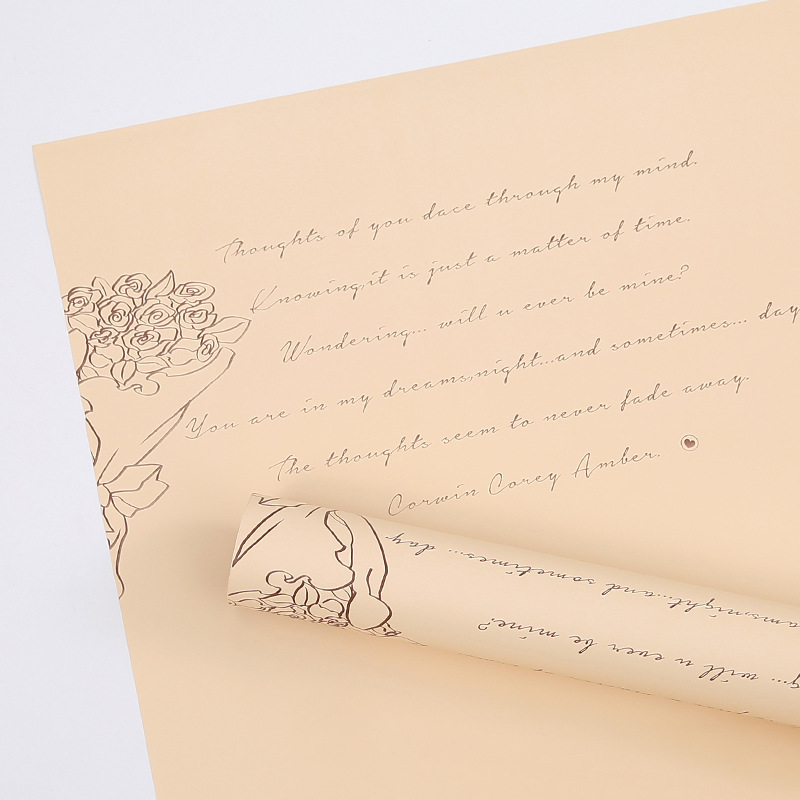 Thoughts of you dace through my mind.
Knowing,it is just a matter of time.
Wondering... will u ever be mine?
You are in my dreams,night...and sometimes... day
The thoughts seem to never fade away.
Corwin Corey Amber.
and sometimes... day
ams,night...
will u ever be mine?